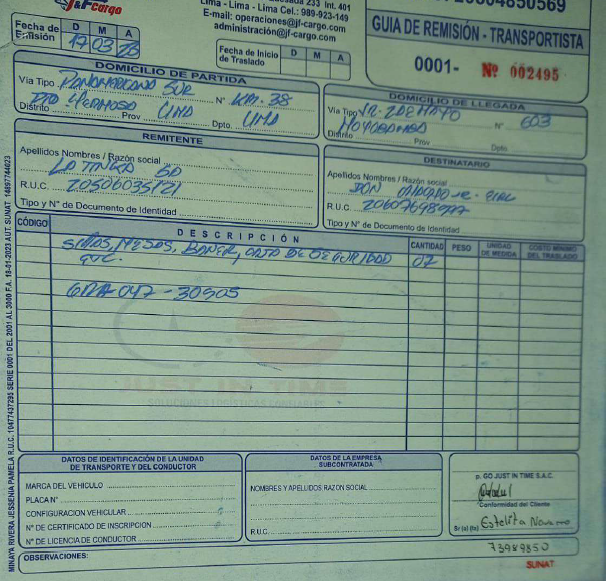 J&Fcargo
Lima - Lima - Lima Cel.: 989-923-149
E-mail: operaciones@jf-cargo.com
administración@jf-cargo.com
Fecha de Emisión D M A
17 03 23
Fecha de Inicio de Traslado D M A
GUIA DE REMISIÓN - TRANSPORTISTA
0001- Nº 002495
DOMICILIO DE PARTIDA
Vía Tipo Panamericana Sur Nº KM. 38
Distrito Pto Hermoso Prov Lima Dpto. Lima
DOMICILIO DE LLEGADA
Vía Tipo Jr. 2 de Mayo Nº 603
Distrito Prov Dpto.
REMITENTE
Apellidos Nombres / Razón social
R.U.C. 20506035121
Tipo y N° de Documento de Identidad
DESTINATARIO
Apellidos Nombres / Razón social
R.U.C.
Tipo y Nº de Documento de Identidad
CÓDIGO DESCRIPCIÓN CANTIDAD PESO UNIDAD DE MEDIDA COSTO MINIMO DEL TRASLADO
Sillas, Mesas, Baner, de Seguridad 07
047-30505
JUST IN TIME
SOLUCIONES LOGÍSTICAS CONFIABLES
DATOS DE IDENTIFICACIÓN DE LA UNIDAD
DE TRANSPORTE Y DEL CONDUCTOR
MARCA DEL VEHICULO
PLACA Nº
CONFIGURACION VEHICULAR
Nº DE CERTIFICADO DE INSCRIPCION
Nº DE LICENCIA DE CONDUCTOR
DATOS DE LA EMPRESA
SUBCONTRATADA
NOMBRES Y APELLIDOS RAZON SOCIAL
R.U.C.
p. GO JUST IN TIME S.A.C.
Conformidad del Cliente
Sr (a) (ta) Estelita Navarro
73989850
OBSERVACIONES:
SUNAT
MINAYA RIVERA JESSENIA PAMELA R.U.C. 10477437295 SERIE 0001 DEL 2001 AL 3000 F.A. 18-01-2023 AUT. SUNAT